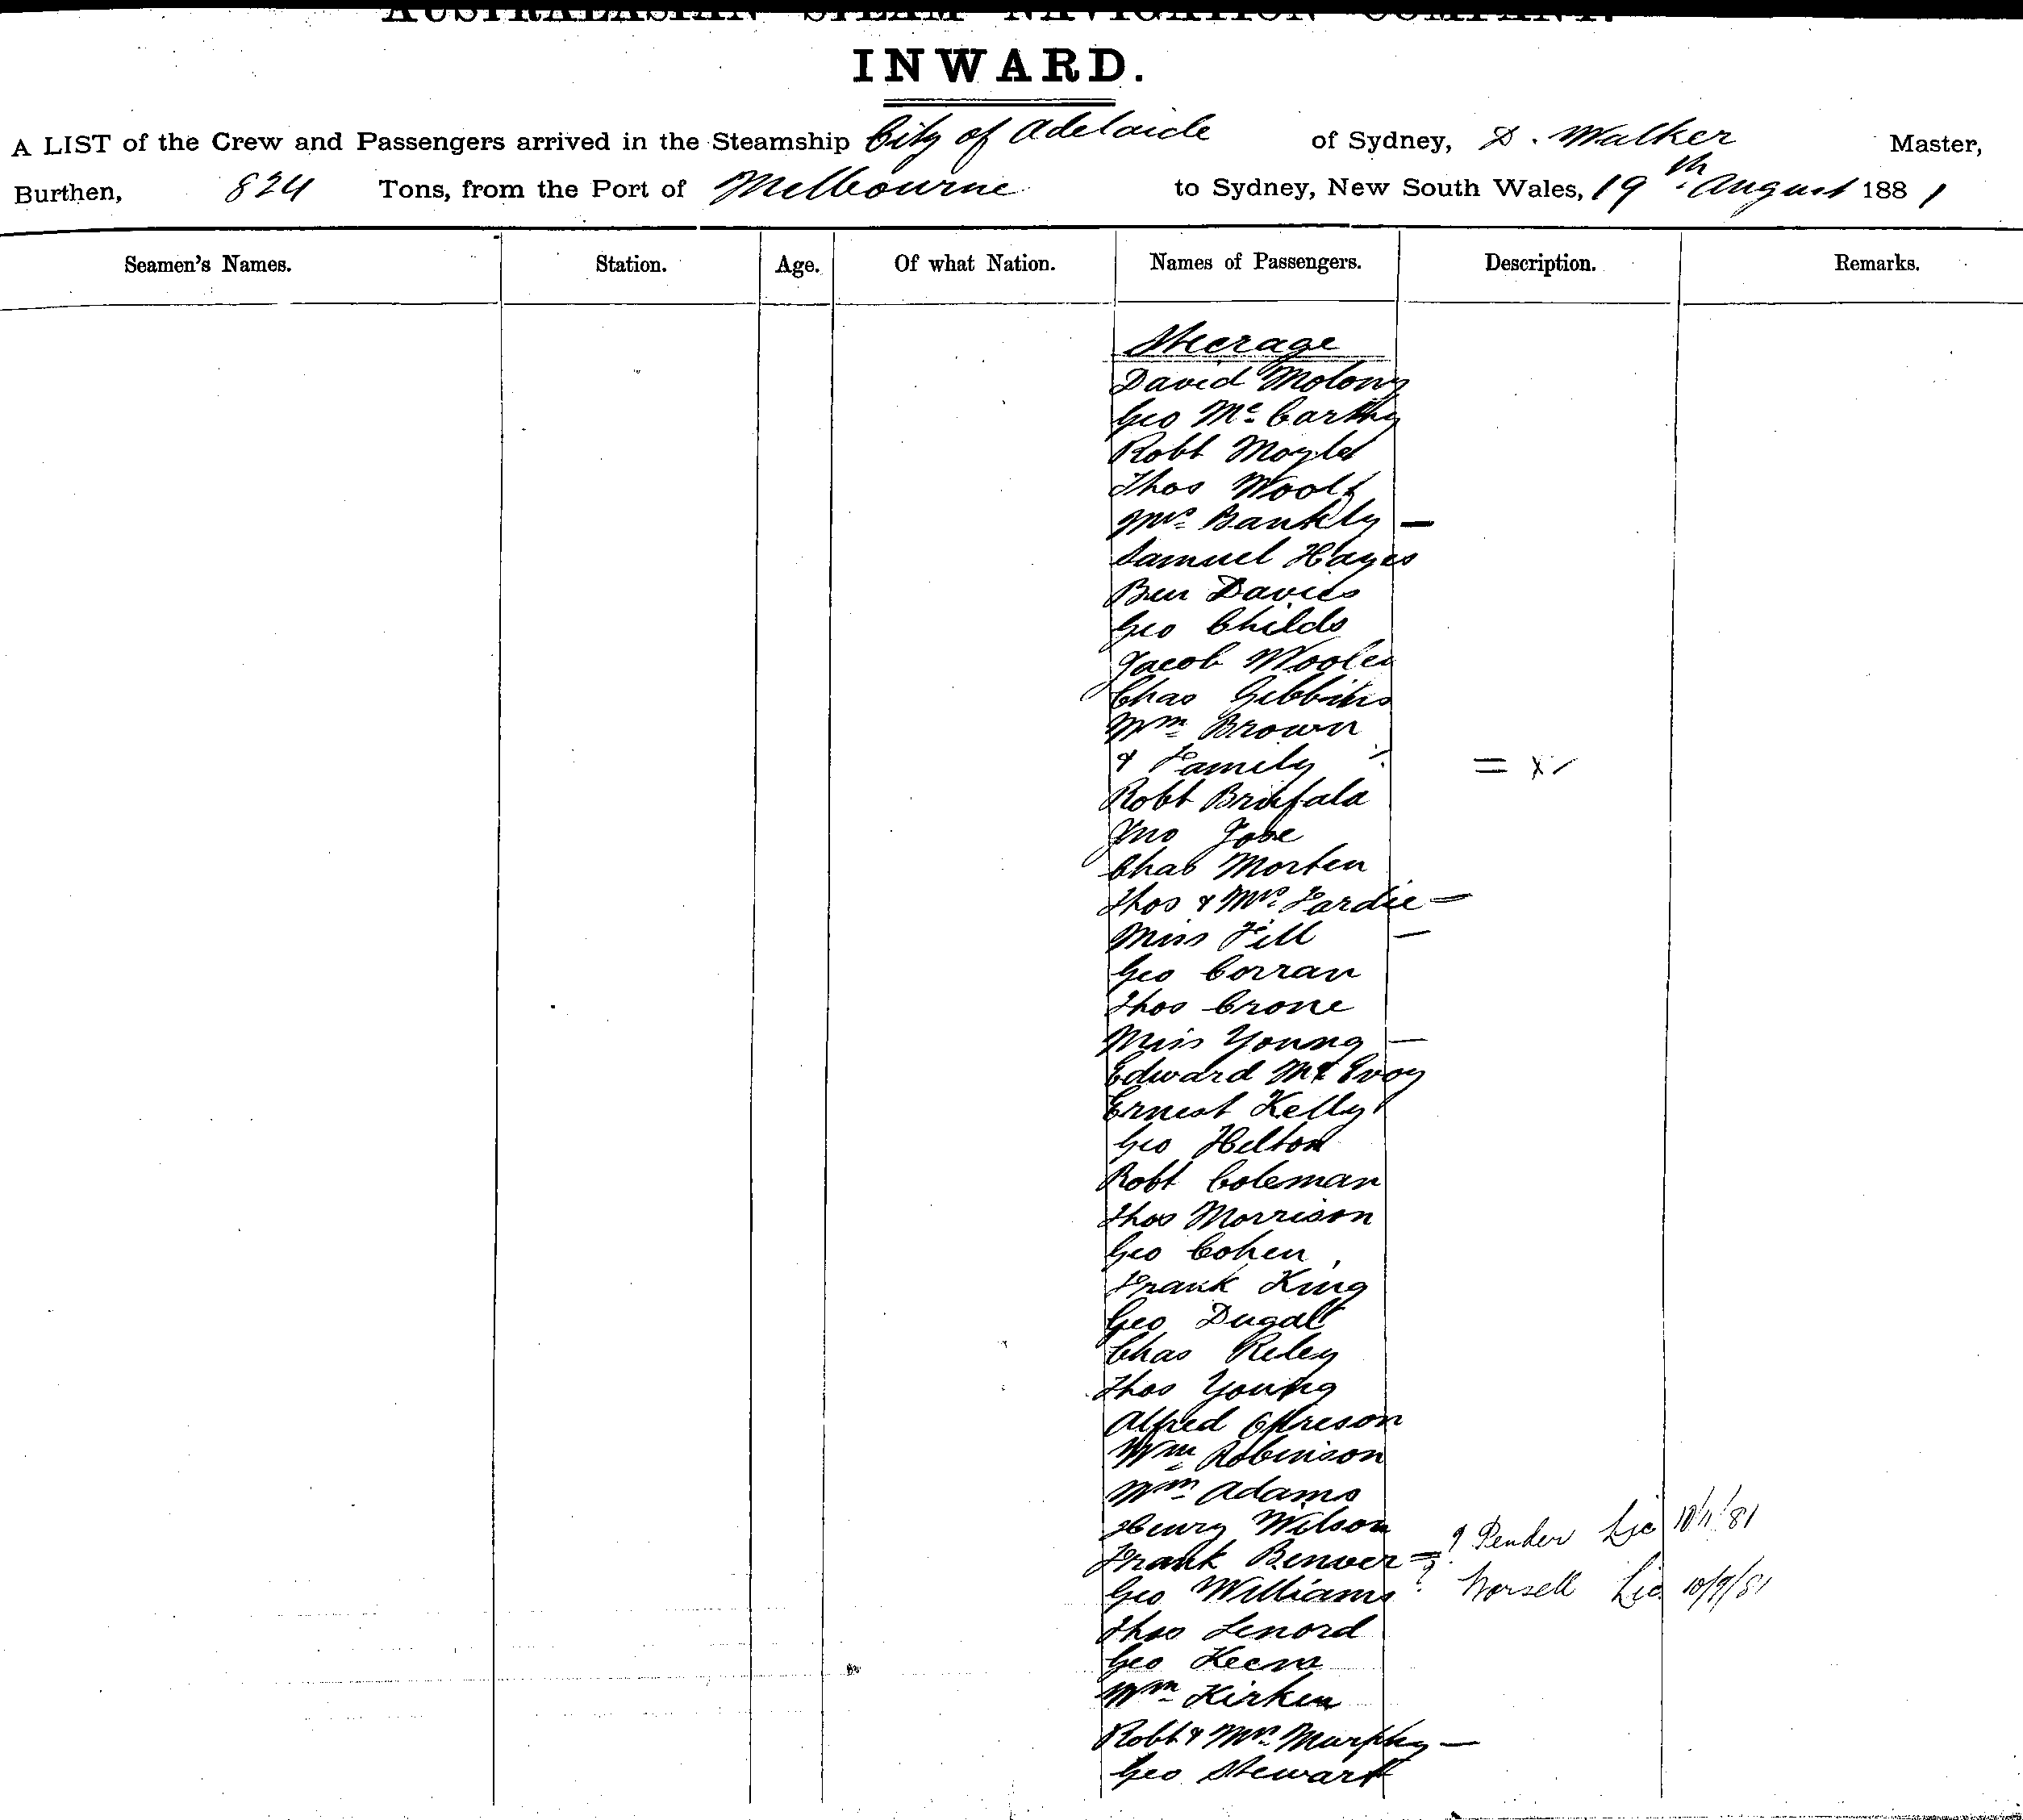 AUSTRALASIAN STEAM NAVIGATION COMPANY.
INWARD.
A LIST of the Crew and Passengers arrived in the Steamship City of Adelaide of Sydney, D. Walker Master,
Burthen, 824 Tons, from the Port of Melbourne to Sydney, New South Wales, 19th August 1881
Seamen's Names. Station. Age. Of what Nation. Names of Passengers. Description. Remarks.
Steerage
David Molony
Geo McCarthy
Robt Moyle
Thos Woolf
Mrs Bankly —
Samuel Hayes
Ben Davies
Geo Childs
Jacob Wooley
Chas Gibbins
Wm Brown
& Family = x
Robt
Jno Jose
Chas Morten
Thos & Mrs Fardie =
Miss Fill —
Geo Corran
Thos Crone
Miss Young —
Edward McEvoy
Ernest Kelly
Geo Hilton
Robt Coleman
Thos Morrison
Geo Cohen
Frank King
Geo Dugalt
Chas Riley
Thos Young
Alfred
Wm Robinson
Wm Adams
Henry Wilson ? Pender Lic 10/11/81
Frank Benver =
Geo Williams ? Worsell Lic. 10/9/81
Thos Lenord
Geo
Wm Kirken
Robt & Mrs Murphy —
Geo Stewart